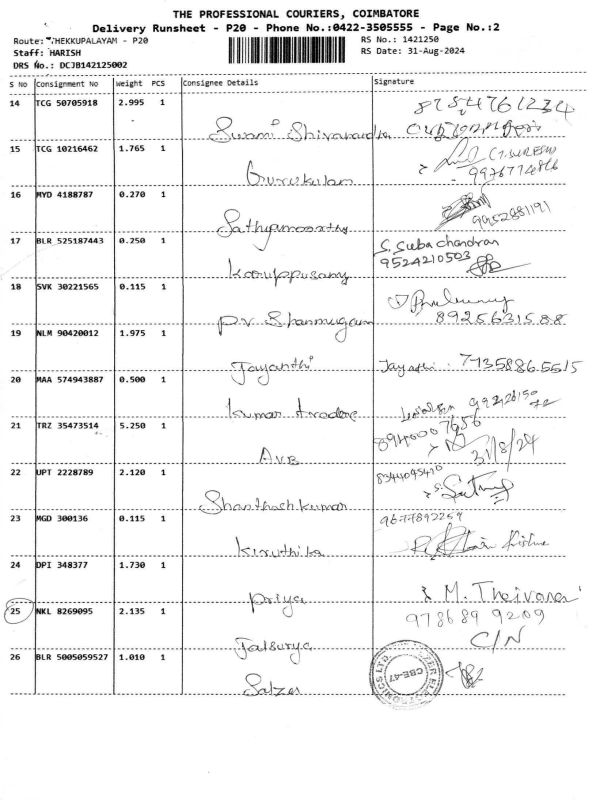 THE PROFESSIONAL COURIERS, COIMBATORE
Delivery Runsheet - P20 - Phone No.:0422-3505555 - Page No.:2
Route: THEKKUPALAYAM - P20 RS No.: 1421250
Staff: HARISH RS Date: 31-Aug-2024
DRS No.: DCJB142125002
S No Consignment No Weight PCS Consignee Details Signature
14 TCG 50705918 2.995 1
Swami Shivanandha
15 TCG 10216462 1.765 1
Gurukulam
16 MYD 4188787 0.270 1
Sathyamoorthy 9952881191
17 BLR 525187443 0.250 1 S. Subachandran
Karuppusamy 9524210503
18 SVK 30221565 0.115 1
P.V. Shanmugam 8925631588
19 NLM 90420012 1.975 1
Jayanthi
20 MAA 574943887 0.500 1
Kumar
21 TRZ 35473514 5.250 1
AVB 31/8/24
22 UPT 2228789 2.120 1
Shanthosh kumar
23 MGD 300136 0.115 1 9677892259
Kiruthika
24 DPI 348377 1.730 1
Priya
25 NKL 8269095 2.135 1 978689 9209
Jalsurya C/N
26 BLR 5005059527 1.010 1
Salzer CBE-47